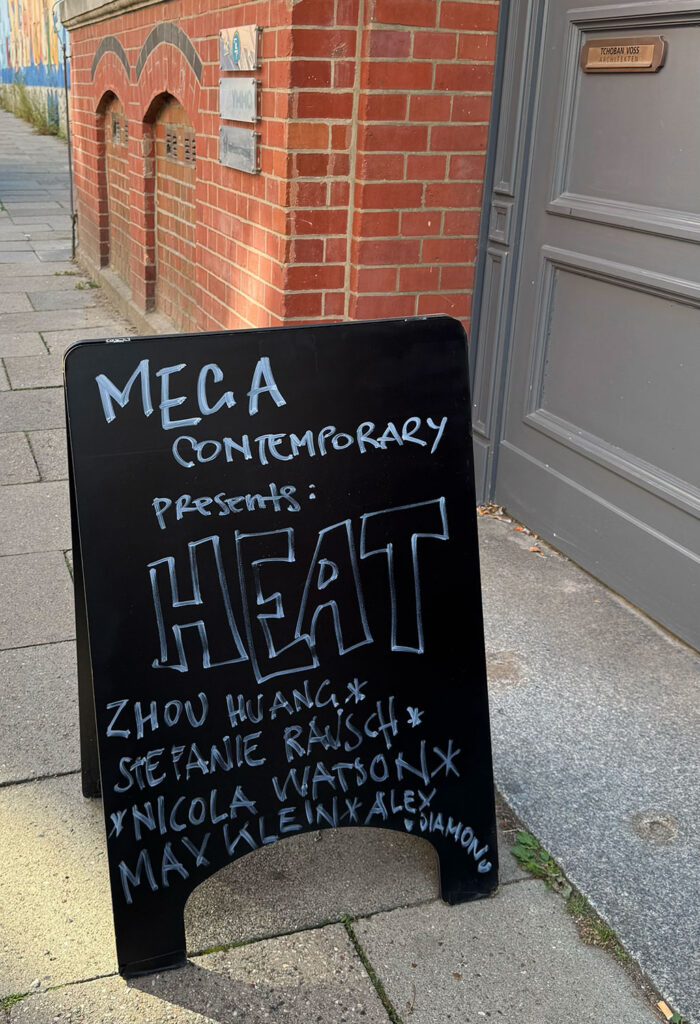 TCHOBAN VOSS
ARCHITEKTEN
MEGA
CONTEMPORARY
presents:
HEAT
ZHOU HUANG*
STEFANIE RAUSCH*
*NICOLA WATSON*
MAX KLEIN*ALEX
DIAMOND